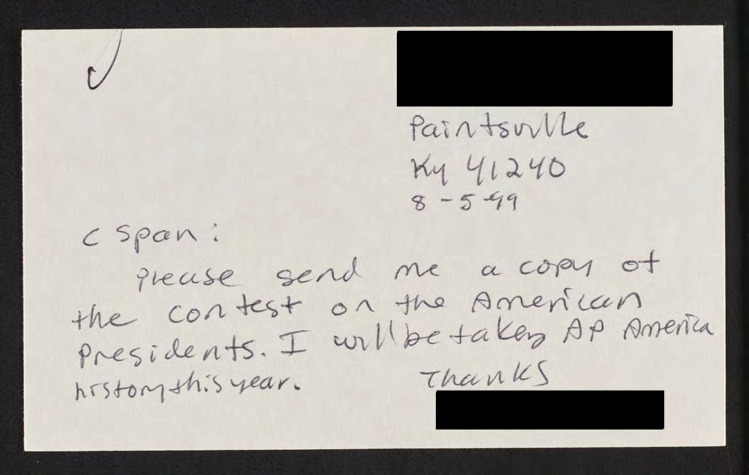 Paintsville
Ky 41240
8-5-99
C Span:
Please send me a copy of
the contest on the American
Presidents. I will be taking AP America
history this year.
Thanks